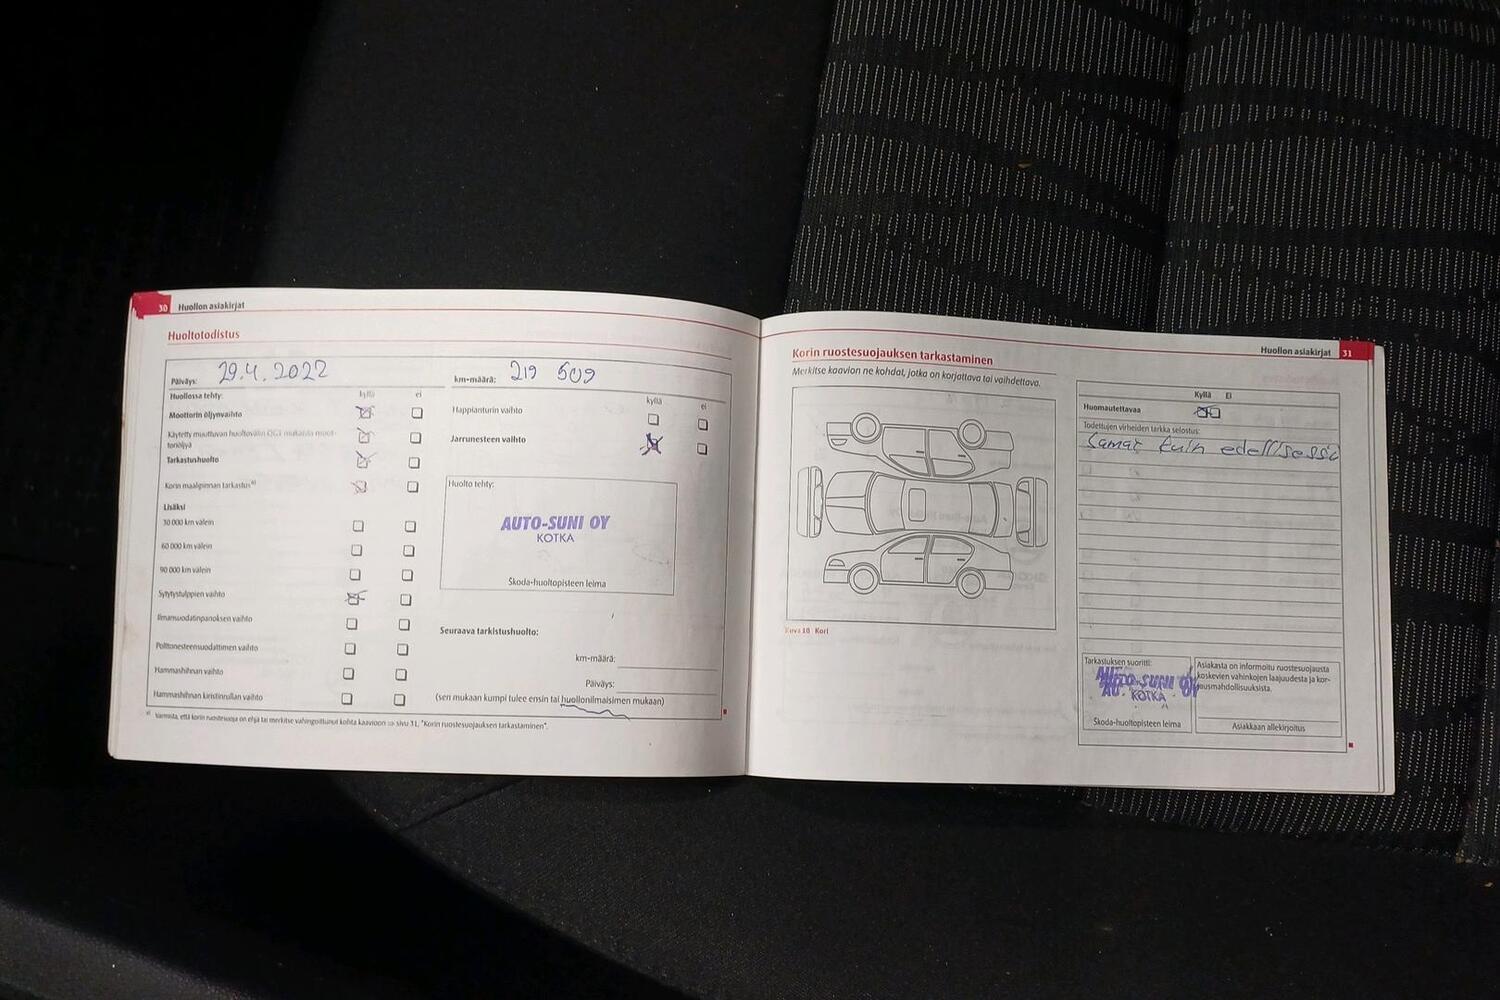 30 Huollon asiakirjat
Huoltotodistus
Päiväys: 29.4.2022
km-määrä: 219 509
Huollossa tehty: kyllä ei
Moottorin öljynvaihto
Käytetty muuttuvan huoltovälin QG1 mukaista moot-
toriöljyä
Tarkastushuolto
Korin maalipinnan tarkastus a)
Lisäksi
30 000 km välein
60 000 km välein
90 000 km välein
Sytytystulppien vaihto
Ilmansuodatinpanoksen vaihto
Polttonesteensuodattimen vaihto
Hammashihnan vaihto
Hammashihnan kiristinrullan vaihto
kyllä ei
Happianturin vaihto
Jarrunesteen vaihto
Huolto tehty:
AUTO-SUNI OY
KOTKA
Škoda-huoltopisteen leima
Seuraava tarkistushuolto:
km-määrä:
Päiväys:
(sen mukaan kumpi tulee ensin tai huollonilmaisimen mukaan)
a) Varmista, että korin ruostesuoja on ehjä tai merkitse vahingoittunut kohta kaavioon ⇒ sivu 31, "Korin ruostesuojauksen tarkastaminen".
Huollon asiakirjat 31
Korin ruostesuojauksen tarkastaminen
Merkitse kaavion ne kohdat, jotka on korjattava tai vaihdettava.
Kuva 10 Kori
Kyllä Ei
Huomautettavaa
Todettujen virheiden tarkka selostus:
Samat kuin edellisessä
Tarkastuksen suoritti:
AUTO-SUNI OY
KOTKA
Škoda-huoltopisteen leima
Asiakasta on informoitu ruostesuojausta
koskevien vahinkojen laajuudesta ja kor-
jausmahdollisuuksista.
Asiakkaan allekirjoitus